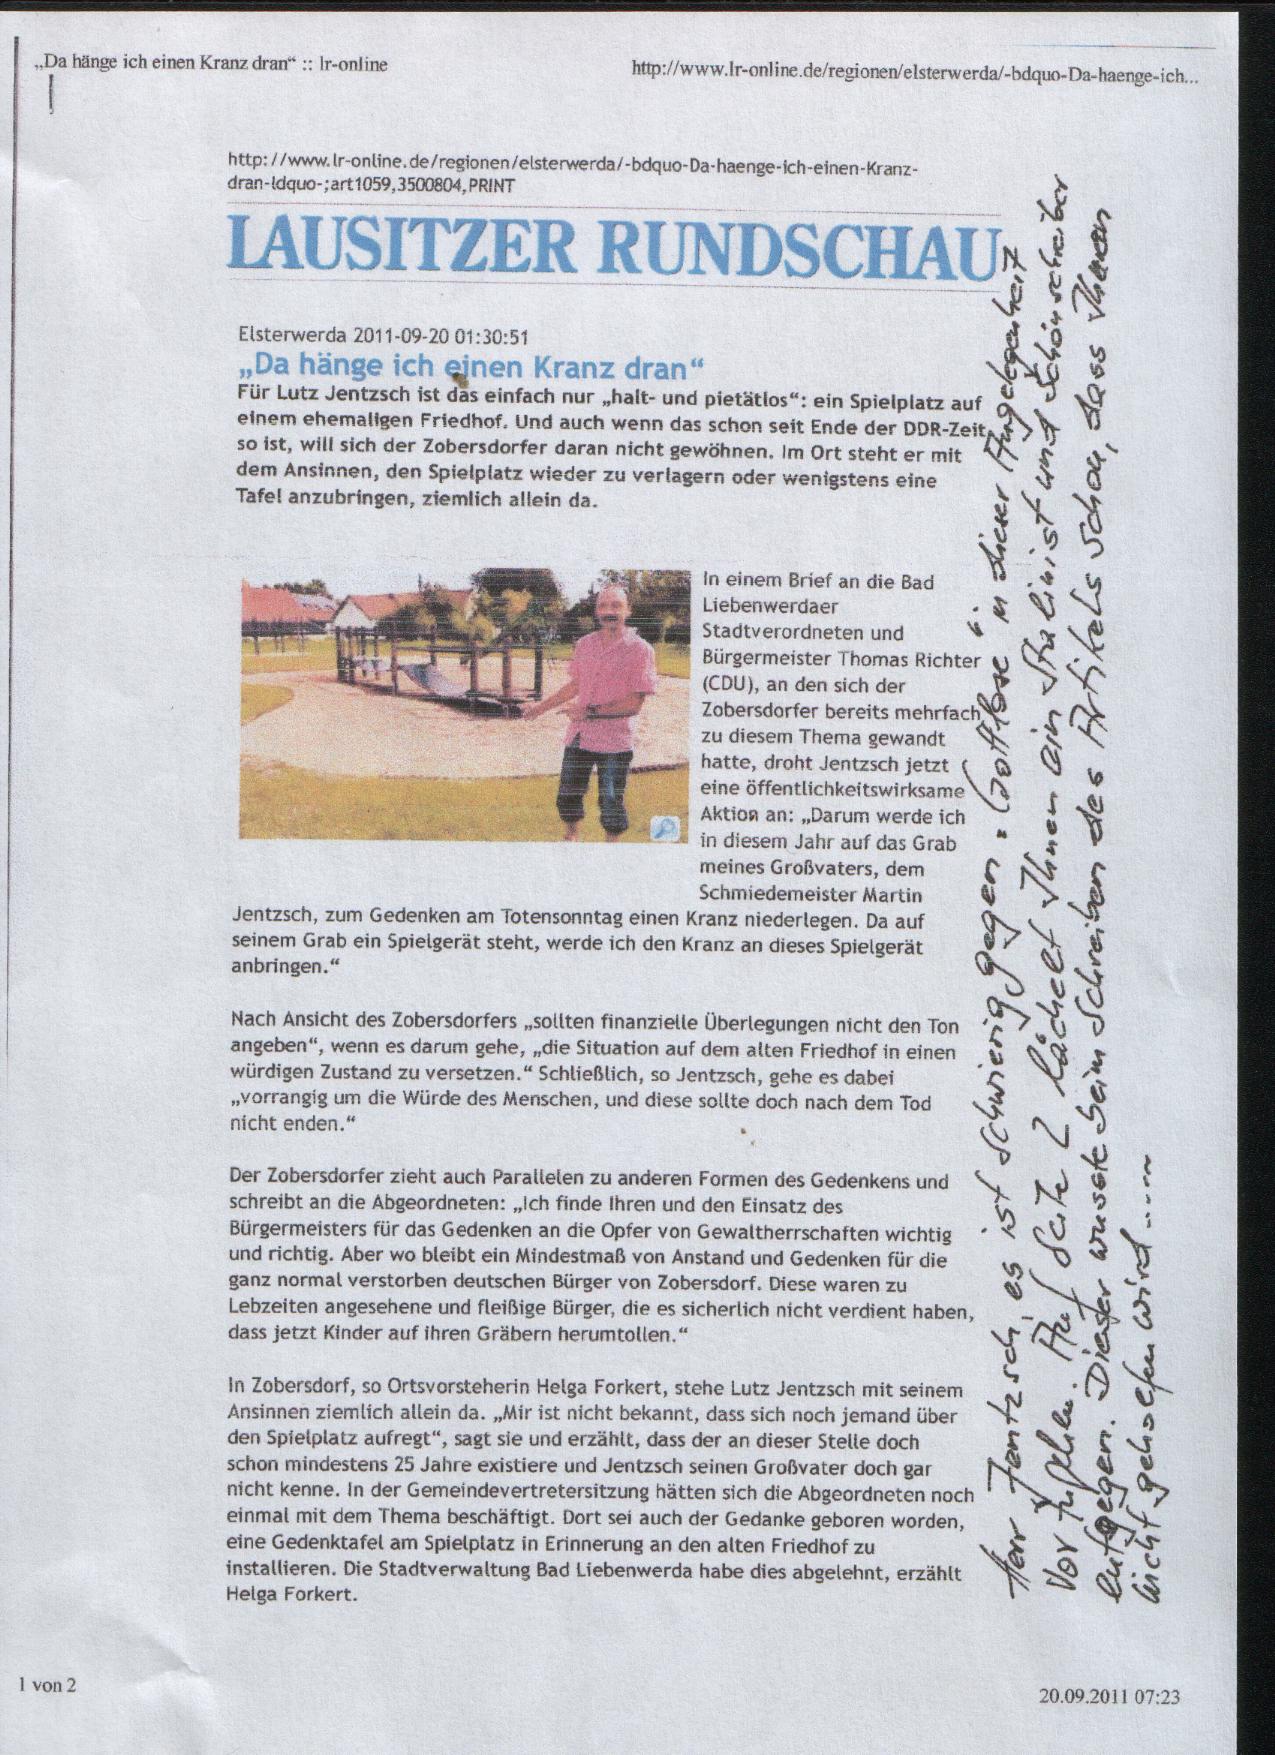 „Da hänge ich einen Kranz dran“ :: lr-online
http://www.lr-online.de/regionen/elsterwerda/-bdquo-Da-haenge-ich...
http://www.lr-online.de/regionen/elsterwerda/-bdquo-Da-haenge-ich-einen-Kranz-
dran-ldquo-;art1059,3500804,PRINT
LAUSITZER RUNDSCHAU
Elsterwerda 2011-09-20 01:30:51
„Da hänge ich einen Kranz dran“
Für Lutz Jentzsch ist das einfach nur „halt- und pietätlos“: ein Spielplatz auf
einem ehemaligen Friedhof. Und auch wenn das schon seit Ende der DDR-Zeit
so ist, will sich der Zobersdorfer daran nicht gewöhnen. Im Ort steht er mit
dem Ansinnen, den Spielplatz wieder zu verlagern oder wenigstens eine
Tafel anzubringen, ziemlich allein da.
In einem Brief an die Bad
Liebenwerdaer
Stadtverordneten und
Bürgermeister Thomas Richter
(CDU), an den sich der
Zobersdorfer bereits mehrfach
zu diesem Thema gewandt
hatte, droht Jentzsch jetzt
eine öffentlichkeitswirksame
Aktion an: „Darum werde ich
in diesem Jahr auf das Grab
meines Großvaters, dem
Schmiedemeister Martin
Jentzsch, zum Gedenken am Totensonntag einen Kranz niederlegen. Da auf
seinem Grab ein Spielgerät steht, werde ich den Kranz an dieses Spielgerät
anbringen.“
Nach Ansicht des Zobersdorfers „sollten finanzielle Überlegungen nicht den Ton
angeben“, wenn es darum gehe, „die Situation auf dem alten Friedhof in einen
würdigen Zustand zu versetzen.“ Schließlich, so Jentzsch, gehe es dabei
„vorrangig um die Würde des Menschen, und diese sollte doch nach dem Tod
nicht enden.“
Der Zobersdorfer zieht auch Parallelen zu anderen Formen des Gedenkens und
schreibt an die Abgeordneten: „Ich finde Ihren und den Einsatz des
Bürgermeisters für das Gedenken an die Opfer von Gewaltherrschaften wichtig
und richtig. Aber wo bleibt ein Mindestmaß von Anstand und Gedenken für die
ganz normal verstorben deutschen Bürger von Zobersdorf. Diese waren zu
Lebzeiten angesehene und fleißige Bürger, die es sicherlich nicht verdient haben,
dass jetzt Kinder auf ihren Gräbern herumtollen.“
In Zobersdorf, so Ortsvorsteherin Helga Forkert, stehe Lutz Jentzsch mit seinem
Ansinnen ziemlich allein da. „Mir ist nicht bekannt, dass sich noch jemand über
den Spielplatz aufregt“, sagt sie und erzählt, dass der an dieser Stelle doch
schon mindestens 25 Jahre existiere und Jentzsch seinen Großvater doch gar
nicht kenne. In der Gemeindevertretersitzung hätten sich die Abgeordneten noch
einmal mit dem Thema beschäftigt. Dort sei auch der Gedanke geboren worden,
eine Gedenktafel am Spielplatz in Erinnerung an den alten Friedhof zu
installieren. Die Stadtverwaltung Bad Liebenwerda habe dies abgelehnt, erzählt
Helga Forkert.
Herr Jentzsch, es ist schwierig gegen "Gottlose" in dieser Angelegenheit
vor zu gehen. Auf Seite 2 lächelt Ihnen ein Stalinist und Schönschreiber
entgegen. Dieser wusste beim Schreiben des Artikels schon, dass Ihnen
nicht geholfen wird .....
1 von 2
20.09.2011 07:23